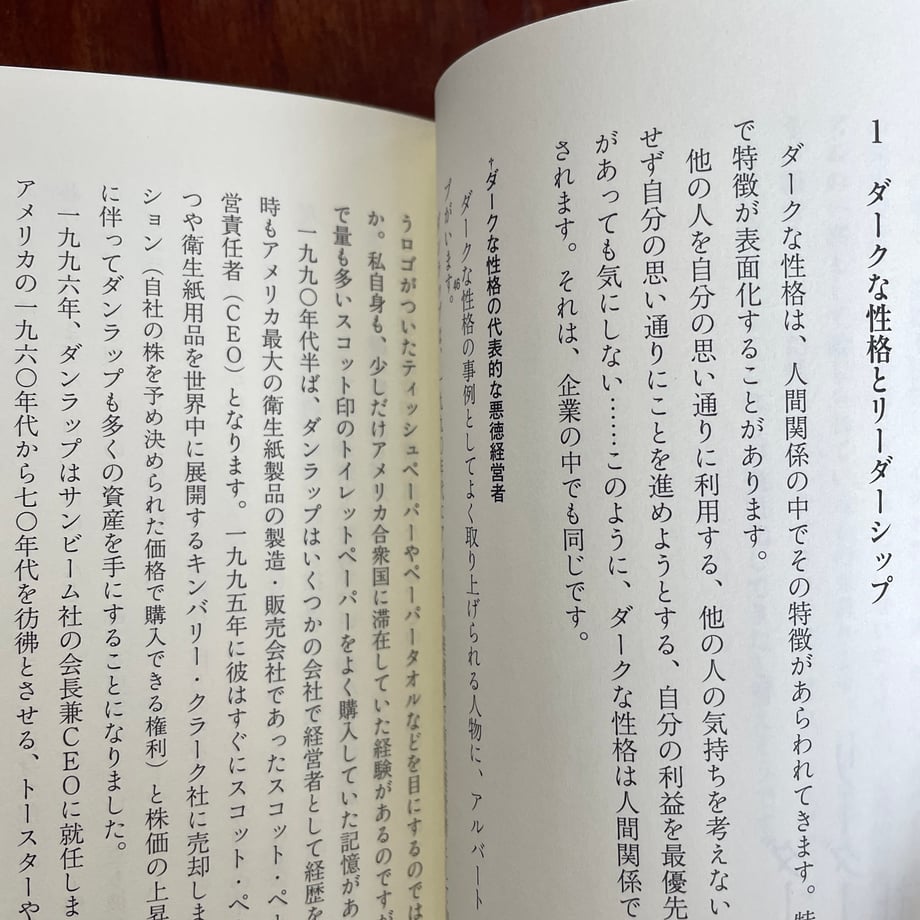 1 ダークな性格とリーダーシップ
ダークな性格は、人間関係の中でその特徴があらわれてきます。特
で特徴が表面化することがあります。
他の人を自分の思い通りに利用する、他の人の気持ちを考えない
せず自分の思い通りにことを進めようとする、自分の利益を最優先
があっても気にしない……このように、ダークな性格は人間関係で
されます。それは、企業の中でも同じです。
†ダークな性格の代表的な悪徳経営者
ダークな性格の事例としてよく取り上げられる人物に、アルバート
プがいます。46
うロゴがついたティッシュペーパーやペーパータオルなどを目にするのでは
か。私自身も、少しだけアメリカ合衆国に滞在していた経験があるのですが
で量も多いスコット印のトイレットペーパーをよく購入していた記憶があ
一九九〇年代半ば、ダンラップはいくつかの会社で経営者として経歴を
時もアメリカ最大の衛生紙製品の製造・販売会社であったスコット・ペ
営責任者(CEO)となります。一九九五年に彼はすぐにスコット・ペ
つや衛生紙用品を世界中に展開するキンバリー・クラーク社に売却しま
ション(自社の株を予め決められた価格で購入できる権利)と株価の上昇
に伴ってダンラップも多くの資産を手にすることになりました。
一九九六年、ダンラップはサンビーム社の会長兼CEOに就任しま
アメリカの一九六〇年代から七〇年代を彷彿とさせる、トースターや